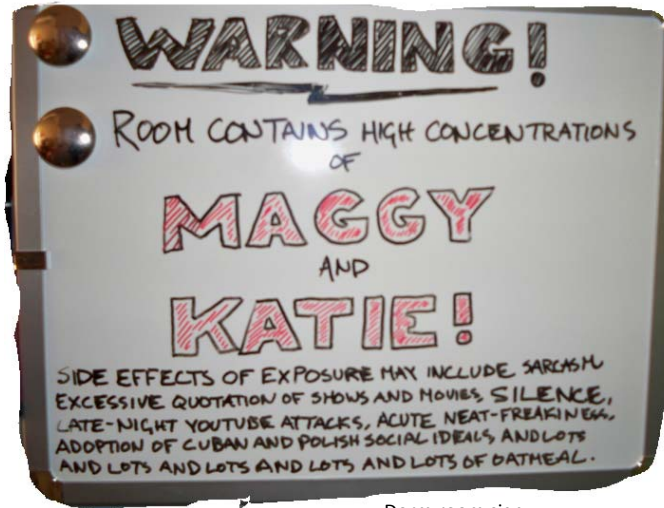 WARNING!
ROOM CONTAINS HIGH CONCENTRATIONS
OF
MAGGY
AND
KATIE!
SIDE EFFECTS OF EXPOSURE MAY INCLUDE SARCASM
EXCESSIVE QUOTATION OF SHOWS AND MOVIES, SILENCE,
LATE-NIGHT YOUTUBE ATTACKS, ACUTE NEAT-FREAKINESS,
ADOPTION OF CUBAN AND POLISH SOCIAL IDEALS, AND LOTS
AND LOTS AND LOTS AND LOTS AND LOTS OF OATMEAL.